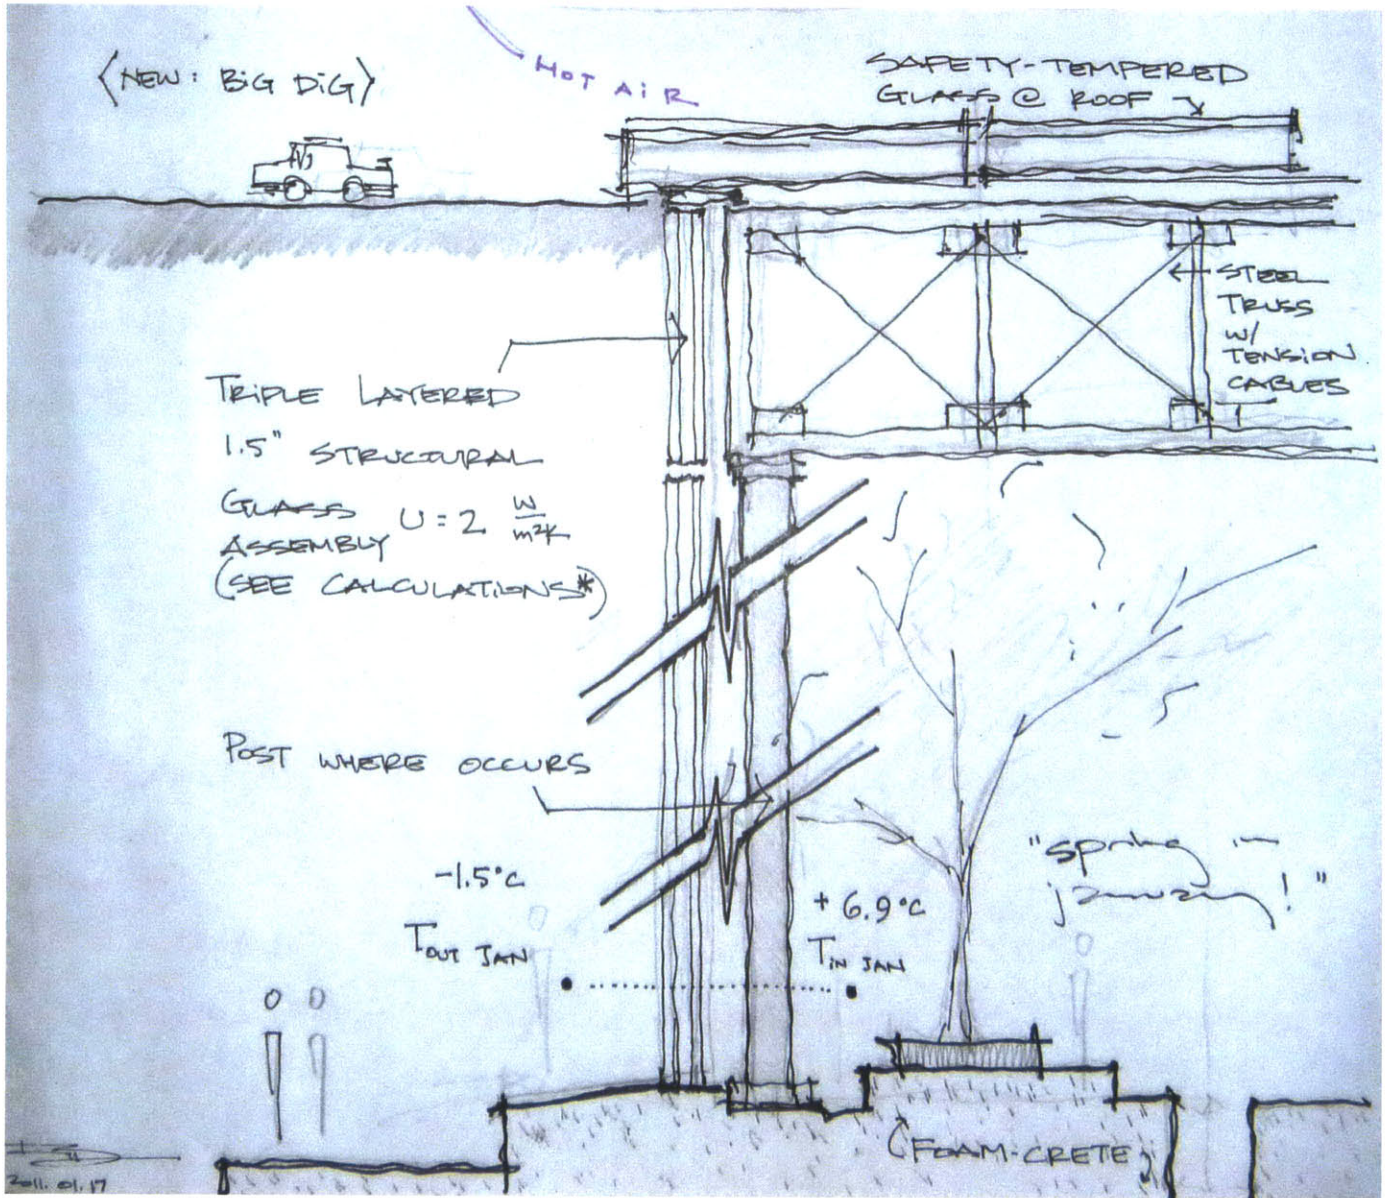 <NEW: BiG DiG>
HOT AiR
SAFETY-TEMPERED
GLASS @ ROOF
STEEL
TRUSS
W/
TENSION
CABLES
TRiPLE LAYERED
1.5" STRUCTURAL
GLASS
ASSEMBLY U = 2 W/m²K
(SEE CALCULATIONS*)
POST WHERE OCCURS
-1.5°C
TOUT JAN
+ 6.9°C
TIN JAN
"spring in
january!"
FOAM-CRETE
2011.01.17